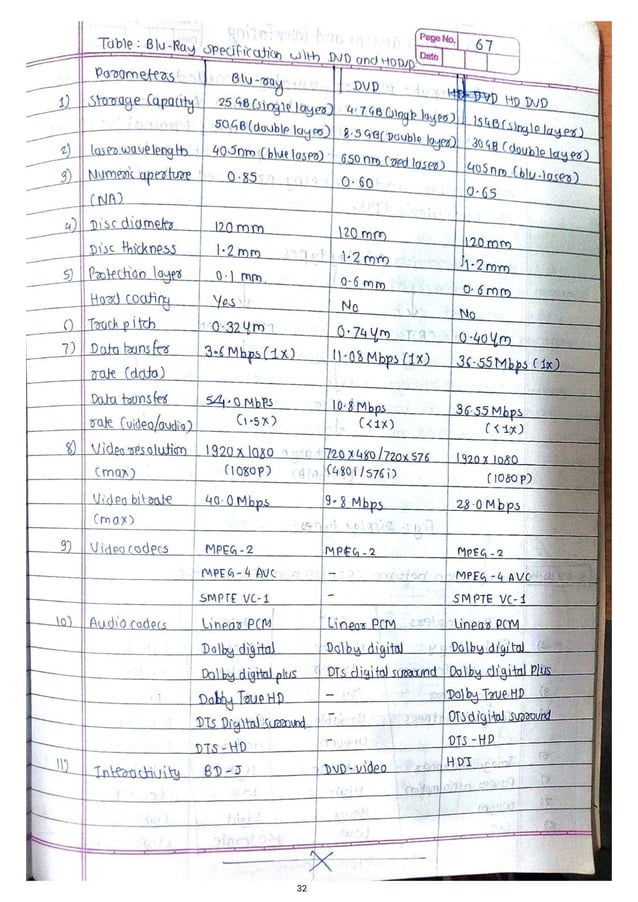 Page No. 67
Date
Table : Blu-Ray specification with DVD and HDDVD
Parameters Blu-ray DVD HD DVD
1) Storage Capacity 25GB (single layer) 4.7GB (single layer) 15GB (single layer)
50GB (double layer) 8.5GB (Double layer) 30GB (double layer)
2) laser wavelength 405nm (blue laser) 650nm (red laser) 405nm (blu-laser)
3) Numeric aperture 0.85 0.60 0.65
(NA)
4) Disc diameter 120mm 120mm 120mm
Disc thickness 1.2mm 1.2mm 1.2mm
5) Protection layer 0.1mm 0.6mm 0.6mm
Hard coating Yes No No
6) Track pitch 0.32 ym 0.74 ym 0.40 ym
7) Data transfer 3.6 Mbps (1x) 11.08 Mbps (1x) 36.55 Mbps (1x)
rate (data)
Data transfer 54.0 Mbps 10.8 Mbps 36.55 Mbps
rate (video/audio) (1.5x) (<1x) (<1x)
8) Video resolution 1920 x 1080 720 x 480 / 720 x 576 1920 x 1080
(max) (1080P) (480i / 576i) (1080P)
Video bitrate 40.0 Mbps 9.8 Mbps 28.0 Mbps
(max)
9) Video codecs MPEG-2 MPEG-2 MPEG-2
MPEG-4 AVC - MPEG-4 AVC
SMPTE VC-1 - SMPTE VC-1
10) Audio codecs Linear PCM Linear PCM Linear PCM
Dolby digital Dolby digital Dolby digital
Dolby digital plus DTS digital surround Dolby digital Plus
Dobby True HD - Dolby True HD
DTS Digital surround - DTS digital surround
DTS-HD - DTS-HD
11) Interactivity BD-J DVD-video HDI
32